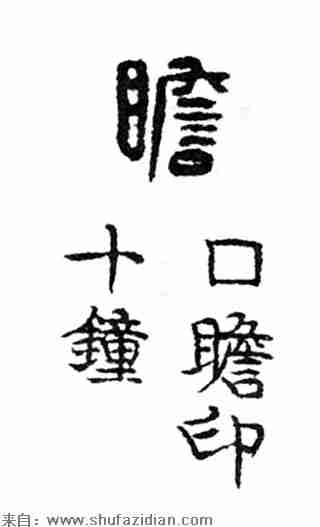 瞻
□瞻印
十鐘
来自：www.shufazidian.com